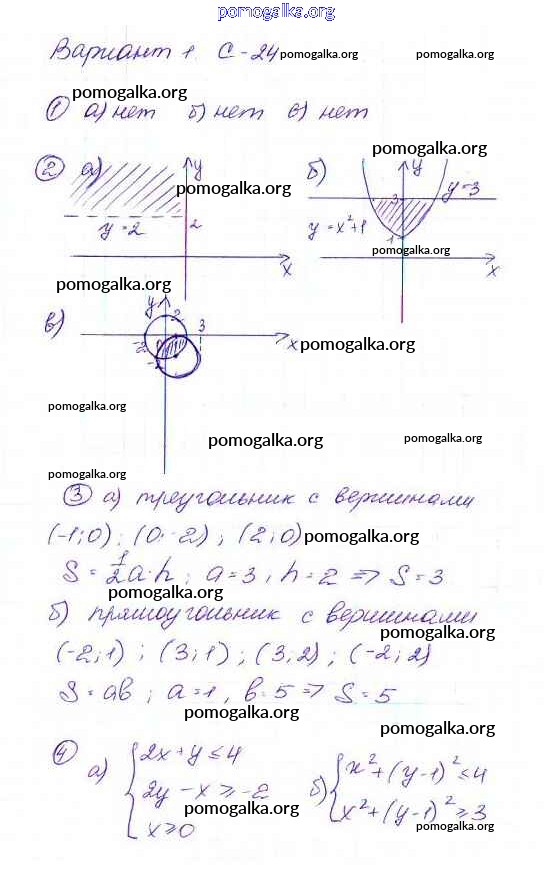 pomogalka.org
Вариант 1. С-24 pomogalka.org
pomogalka.org
① а) нет б) нет в) нет
pomogalka.org
② а) y б) y y=3
pomogalka.org
3
y=2 2 y=x²+1 1
pomogalka.org
x x
pomogalka.org
в) y 2 3
-2 x pomogalka.org
-2
pomogalka.org
pomogalka.org pomogalka.org
pomogalka.org
③ а) треугольник с вершинами
(-1;0); (0;-2); (2;0) pomogalka.org
S = 1/2 a·h; a=3, h=2 => S=3
pomogalka.org
б) прямоугольник с вершинами
pomogalka.org
(-2;1); (3;1); (3;2); (-2;2)
S=ab; a=1, b=5 => S=5
pomogalka.org
pomogalka.org
④ а) { 2x+y≤4
2y-x≥-2
x≥0
б) { x²+(y-1)²≤4
x²+(y-1)²≥3
pomogalka.org
pomogalka.org